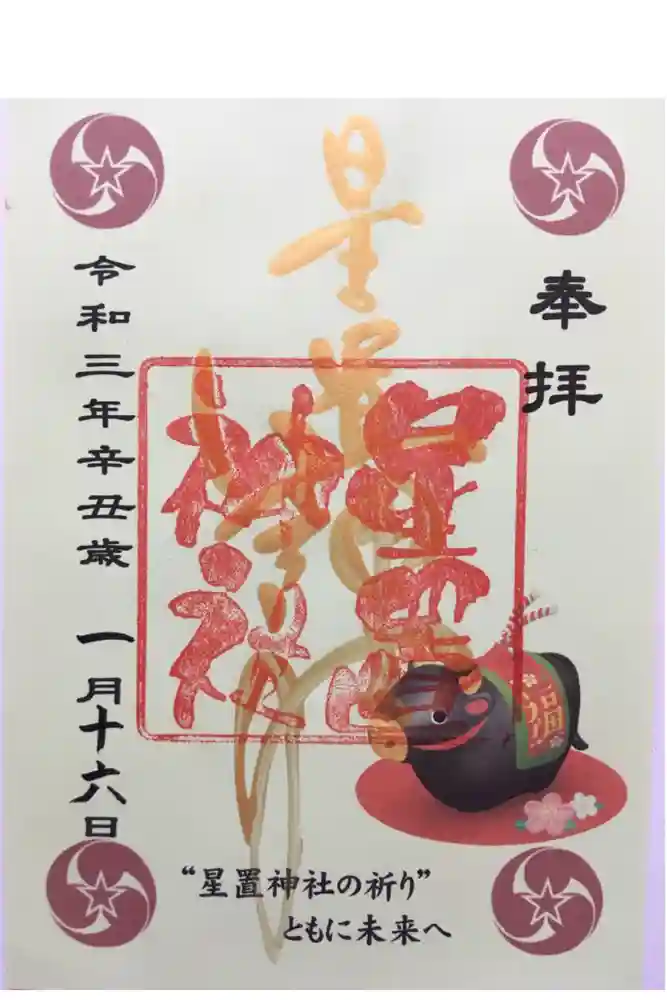 奉拝
星置神社
星置
神社
福
令和三年辛丑歳 一月十六日
“星置神社の祈り”
ともに未来へ